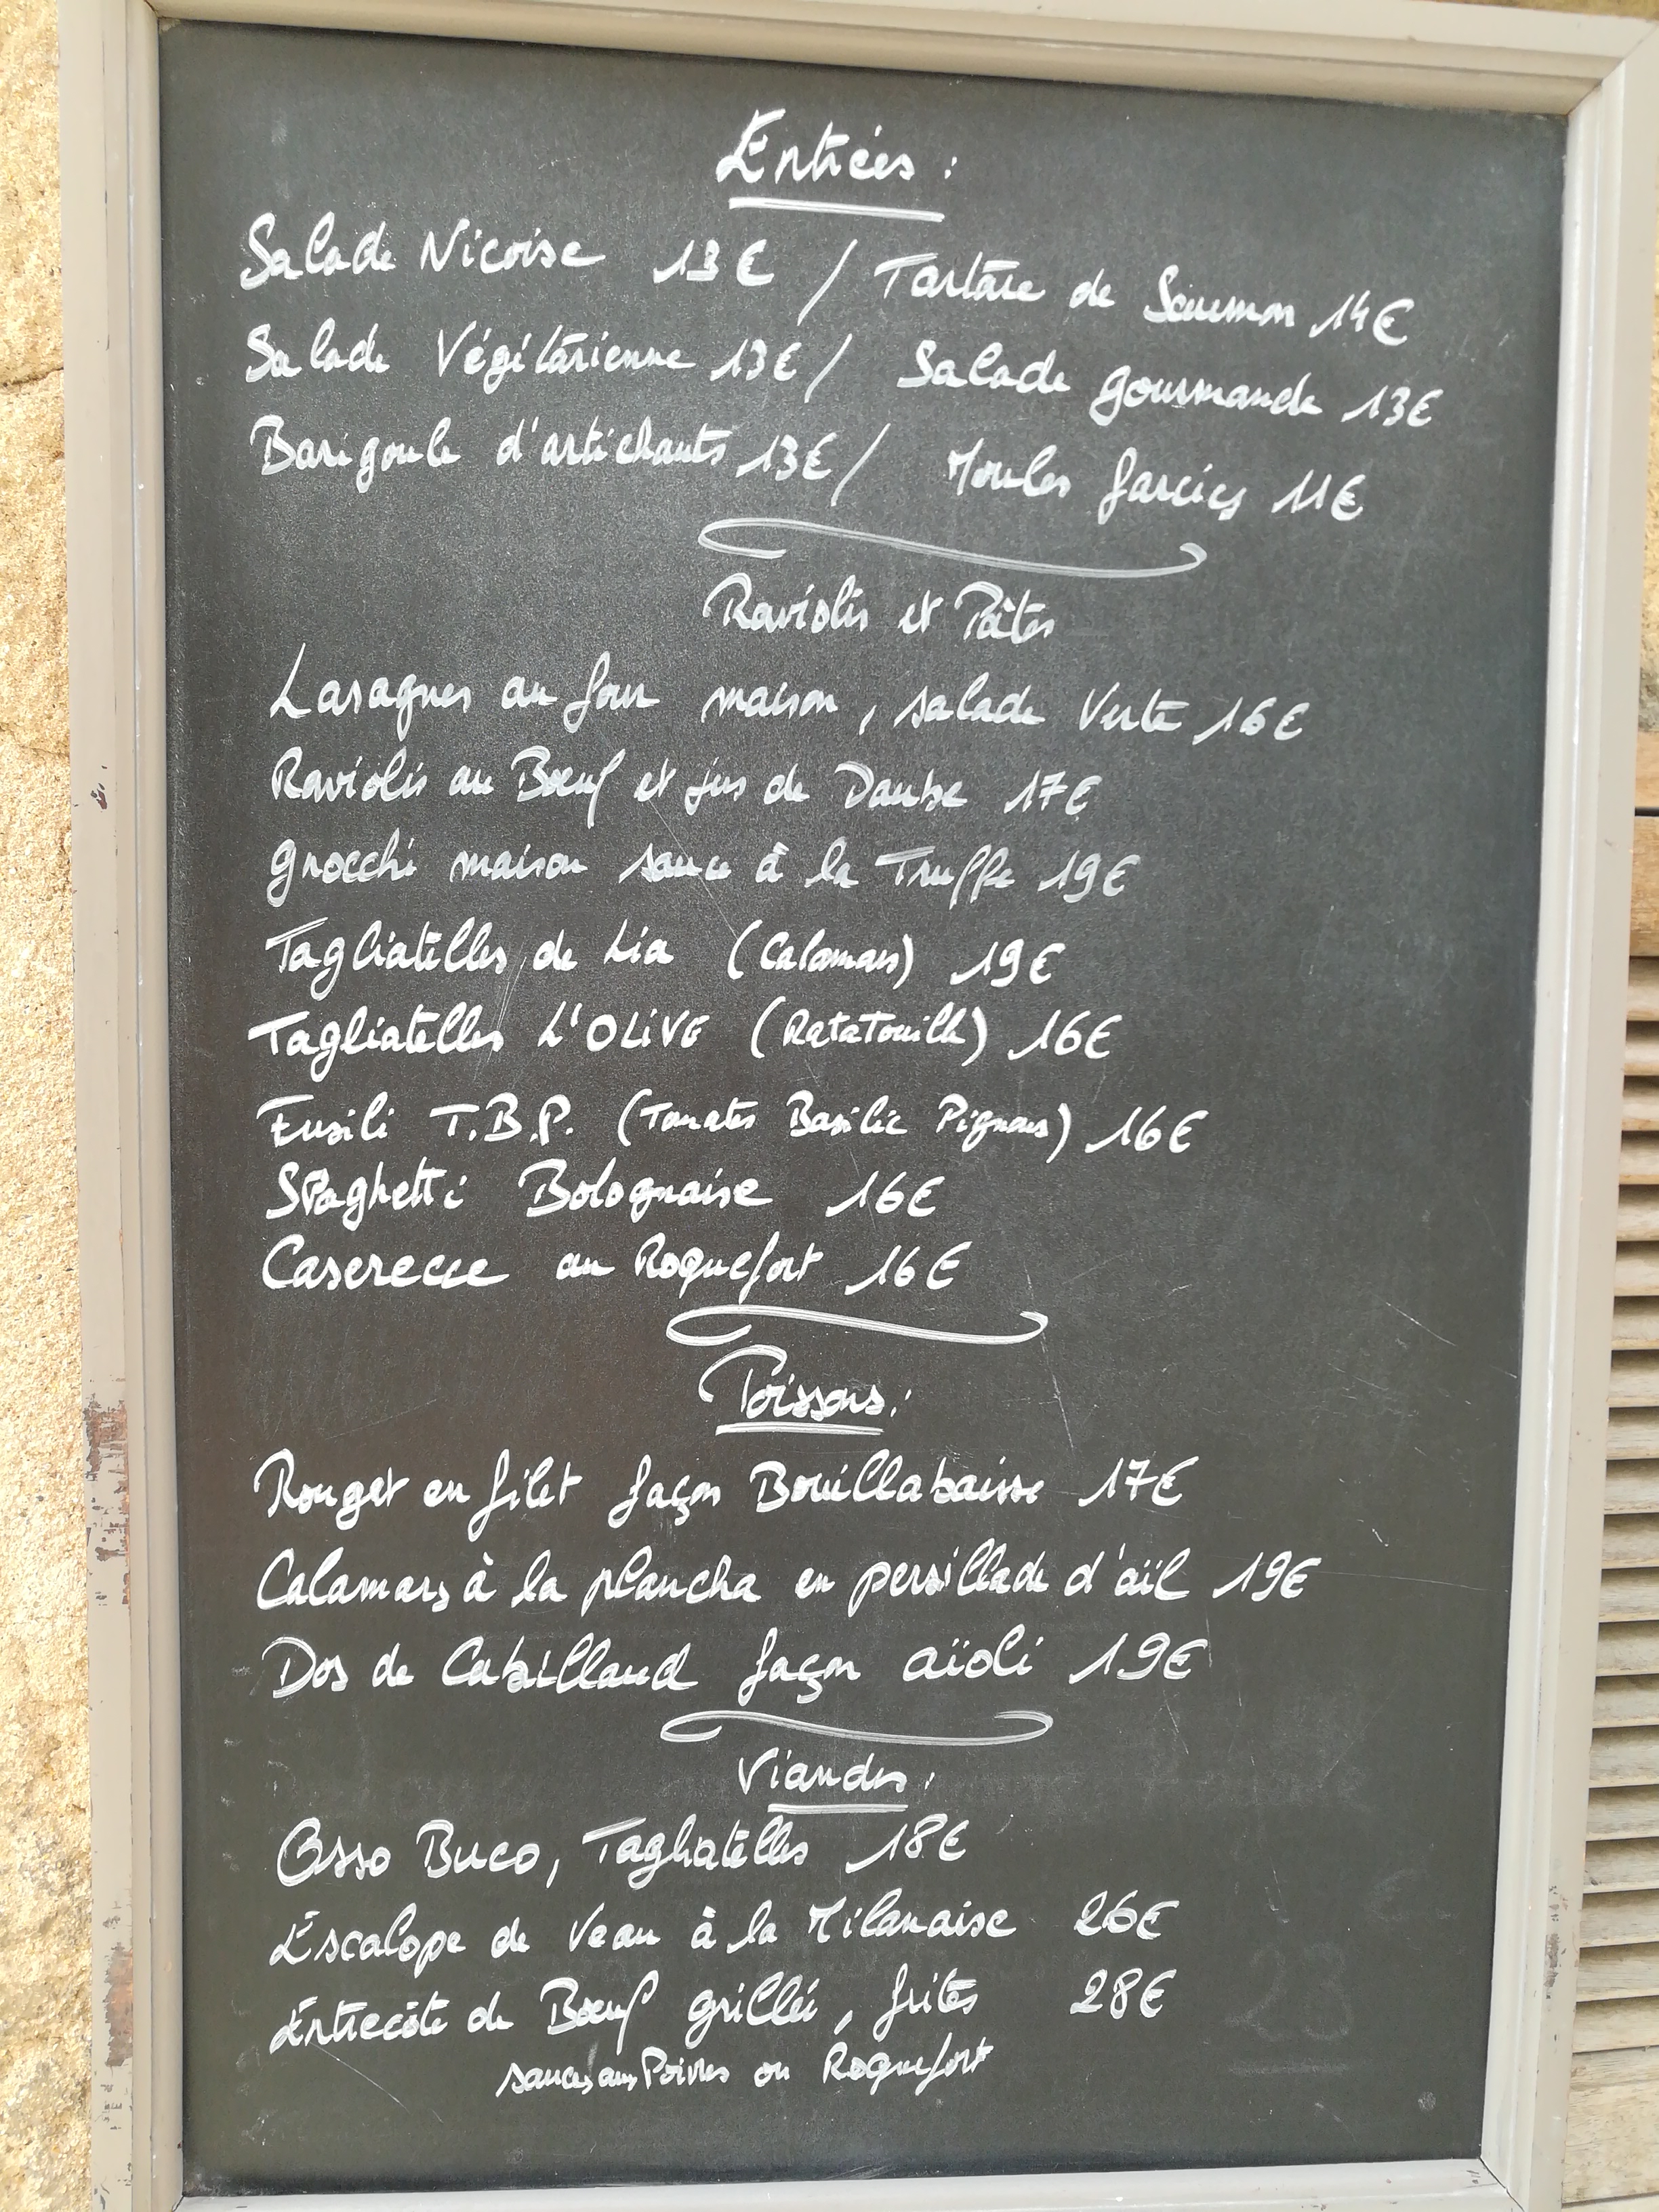 Entrées :
Salade Nicoise 13€ / Tartare de Saumon 14€
Salade Végétarienne 13€ / Salade gourmande 13€
Barigoule d'artichauts 13€ / Moules farcies 11€
Raviolis et Pâtes
Lasagnes au four maison, salade Verte 16€
Raviolis au Bœuf et jus de Daube 17€
gnocchi maison sauce à la Truffe 19€
Tagliatelles de Lia (Calamars) 19€
Tagliatelles L'OLIVE (Ratatouille) 16€
Fusili T.B.P. (Tomates Basilic Pignons) 16€
Spaghetti Bolognaise 16€
Caserecce au Roquefort 16€
Poissons :
Rouget en filet façon Bouillabaisse 17€
Calamars à la plancha en persillade d'aïl 19€
Dos de Cabillaud façon aïoli 19€
Viandes :
Osso Buco, Tagliatelles 18€
Escalope de Veau à la Milanaise 26€
Entrecôte de Bœuf grillée, frites 28€
sauces aux Poivres ou Roquefort